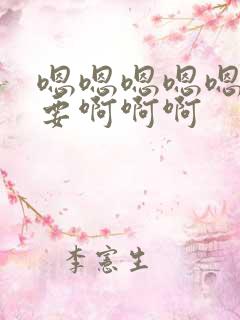 嗯嗯嗯嗯嗯
要啊啊啊
李憲生